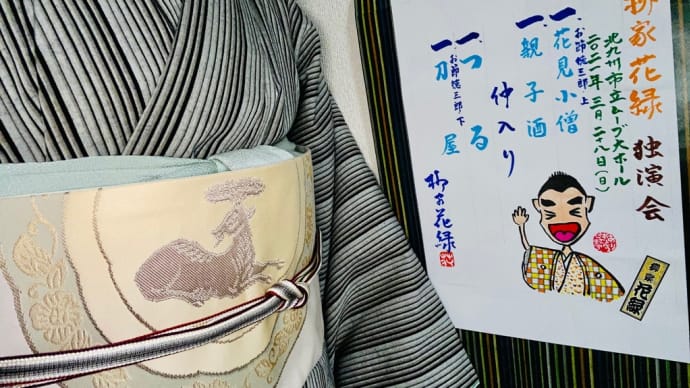 柳家花緑 独演会
北九州市立ムーブ大ホール
二〇二一年三月二十八日(日)
お節徳三郎 上
一、花見小僧
一、親子酒
仲入り
一、つる
お節徳三郎 下
一、刀屋
柳家花緑
柳家花緑